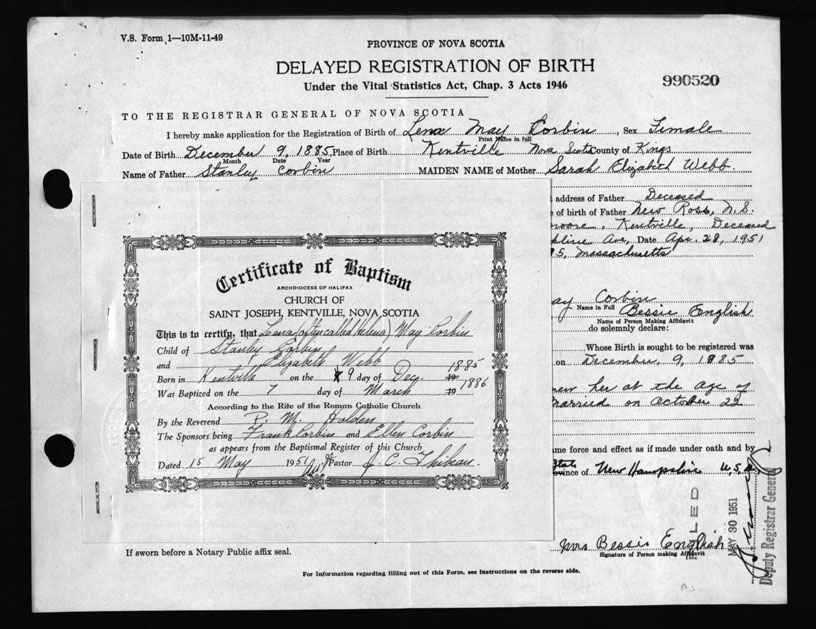 V.S. Form 1—10M-11-49
PROVINCE OF NOVA SCOTIA
DELAYED REGISTRATION OF BIRTH
990520
Under the Vital Statistics Act, Chap. 3 Acts 1946
TO THE REGISTRAR GENERAL OF NOVA SCOTIA
I hereby make application for the Registration of Birth of Lena May Corbin, Sex Female
Print Name in full
Date of Birth December 9, 1885, Place of Birth Kentville Nova Scotia County of Kings
Month Date Year
Name of Father Stanley Corbin MAIDEN NAME of Mother Sarah Elizabeth Webb
address of Father Deceased
e of birth of Father New Ross, N.S.
Kentville, Deceased
Ave, Date Apr. 28, 1951
5, Massachusetts
Certificate of Baptism
ARCHDIOCESE OF HALIFAX
CHURCH OF
SAINT JOSEPH, KENTVILLE, NOVA SCOTIA
This is to certify, that Lena (often called Helena) May Corbin
Child of Stanley Corbin
and Elizabeth Webb
Born in Kentville on the 9 day of Dec. 19 1885
Was Baptized on the 7 day of March 19 1886
According to the Rite of the Roman Catholic Church
By the Reverend P. M. Holden
The Sponsors being Frank Corbin and Ellen Corbin
as appears from the Baptismal Register of this Church
Dated 15 May 1951 Pastor J. C.
ay Corbin
Name in Full
Bessie English
Name of Person Making Affidavit
do solemnly declare:
Whose Birth is sought to be registered was
on December, 9, 1885
her at the age of
married on October 22
me force and effect as if made under oath and by
State
vince of New Hampshire U.S.A.
Mrs Bessie English
Signature of Person making Affidavit
LED
Y 30 1951
Deputy Registrar General
If sworn before a Notary Public affix seal.
For Information regarding filling out of this Form, see Instructions on the reverse side.